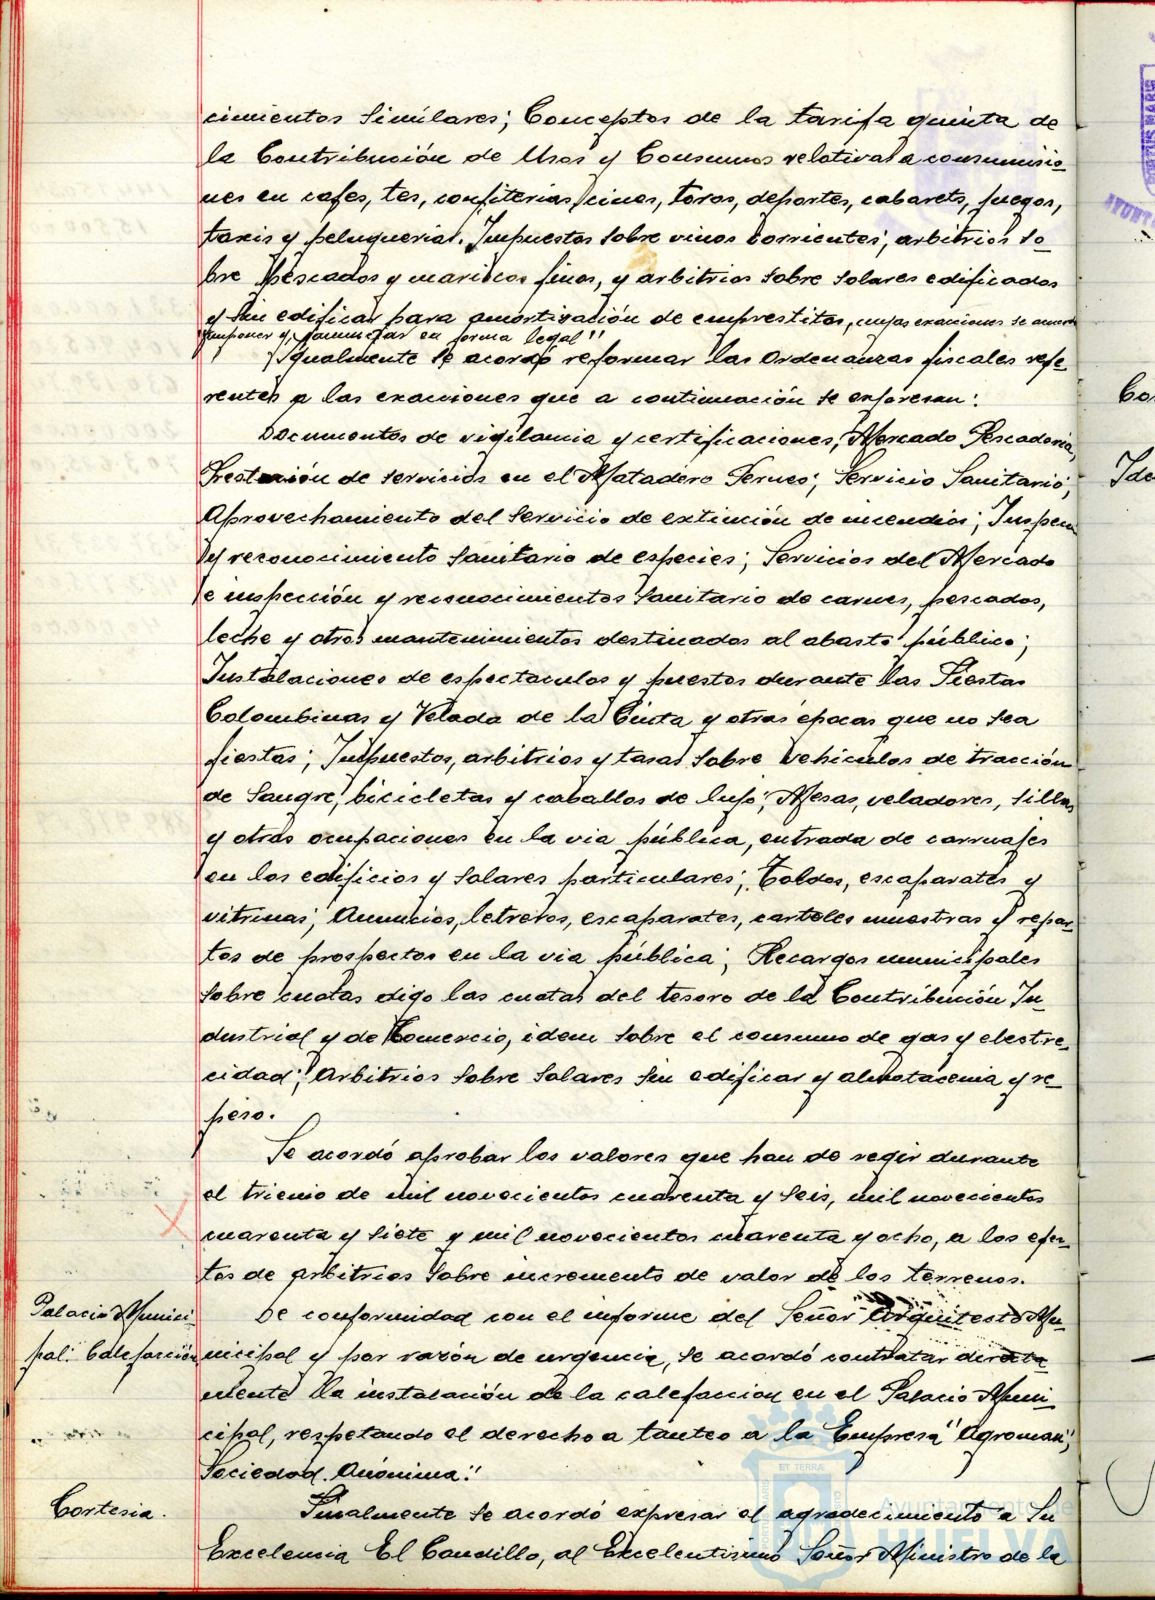 cimientos similares; Conceptos de la tarifa quinta de
la Contribución de Usos y Consumos relativas a consumisio-
nes en cafes, tes, confiterias, cines, toros, deportes, cabarets, juegos,
taxis y peluquerias. Impuestos sobre vinos corrientes; arbitrios so-
bre pescados y mariscos finos, y arbitrios sobre solares edificados
y sin edificar para amortización de emprestitos, cuyas exacciones se acuerda
imponer y aumentar en forma legal"
Igualmente se acordó reformar las Ordenanzas fiscales refe-
rentes a las exacciones que a continuación se expresan:
Documentos de vigilancia y certificaciones; Mercado Pescaderia,
Prestación de servicios en el Matadero Perneo; Servicio Sanitario;
Aprovechamiento del Servicio de extinción de incendios; Inspecn
y reconocimiento sanitario de especies; Servicios del Mercado
e inspección y reconocimientos sanitario de carnes, pescados,
leche y otros mantenimientos destinados al abasto público;
Instalaciones de espectaculos y puestos durante las Fiestas
Colombinas y Velada de la Cinta y otras épocas que no sea
fiestas; Impuestos, arbitrios y tasas sobre vehiculos de tracción
de sangre, bicicletas y caballos de lujo; Mesas, veladores, sillas
y otras ocupaciones en la via pública, entrada de carruajes
en los edificios y solares particulares; Toldos, escaparates y
vitrinas; Anuncios, letreros, escaparates, carteles muestras y repar-
tos de prospectos en la via pública; Recargos municipales
sobre cuotas digo las cuotas del tesoro de la Contribución In-
dustrial y de Comercio, idem sobre el consumo de gas y electre-
cidad; Arbitrios sobre Solares sin edificar y almotacenia y re-
peso.
Se acordó aprobar los valores que han de regir durante
el trienio de mil novecientos cuarenta y seis, mil novecientos
cuarenta y siete y mil novecientos cuarenta y ocho, a los efec-
tos de arbitrios sobre incremento de valor de los terrenos.
Palacio Munici-
pal: Calefacción
De conformidad con el informe del Señor Arquitecto Mu-
nicipal y por razón de urgencia, se acordó contratar directa
mente la instalación de la calefaccion en el Palacio Muni-
cipal, respetando el derecho a tanteo a la Empresa "Agroman",
Sociedad Anónima."
Cortesia.
Finalmente se acordó expresar el agradecimiento a Su
Excelencia El Caudillo, al Excelentisimo Señor Ministro de la
Ayuntamiento de
HUELVA